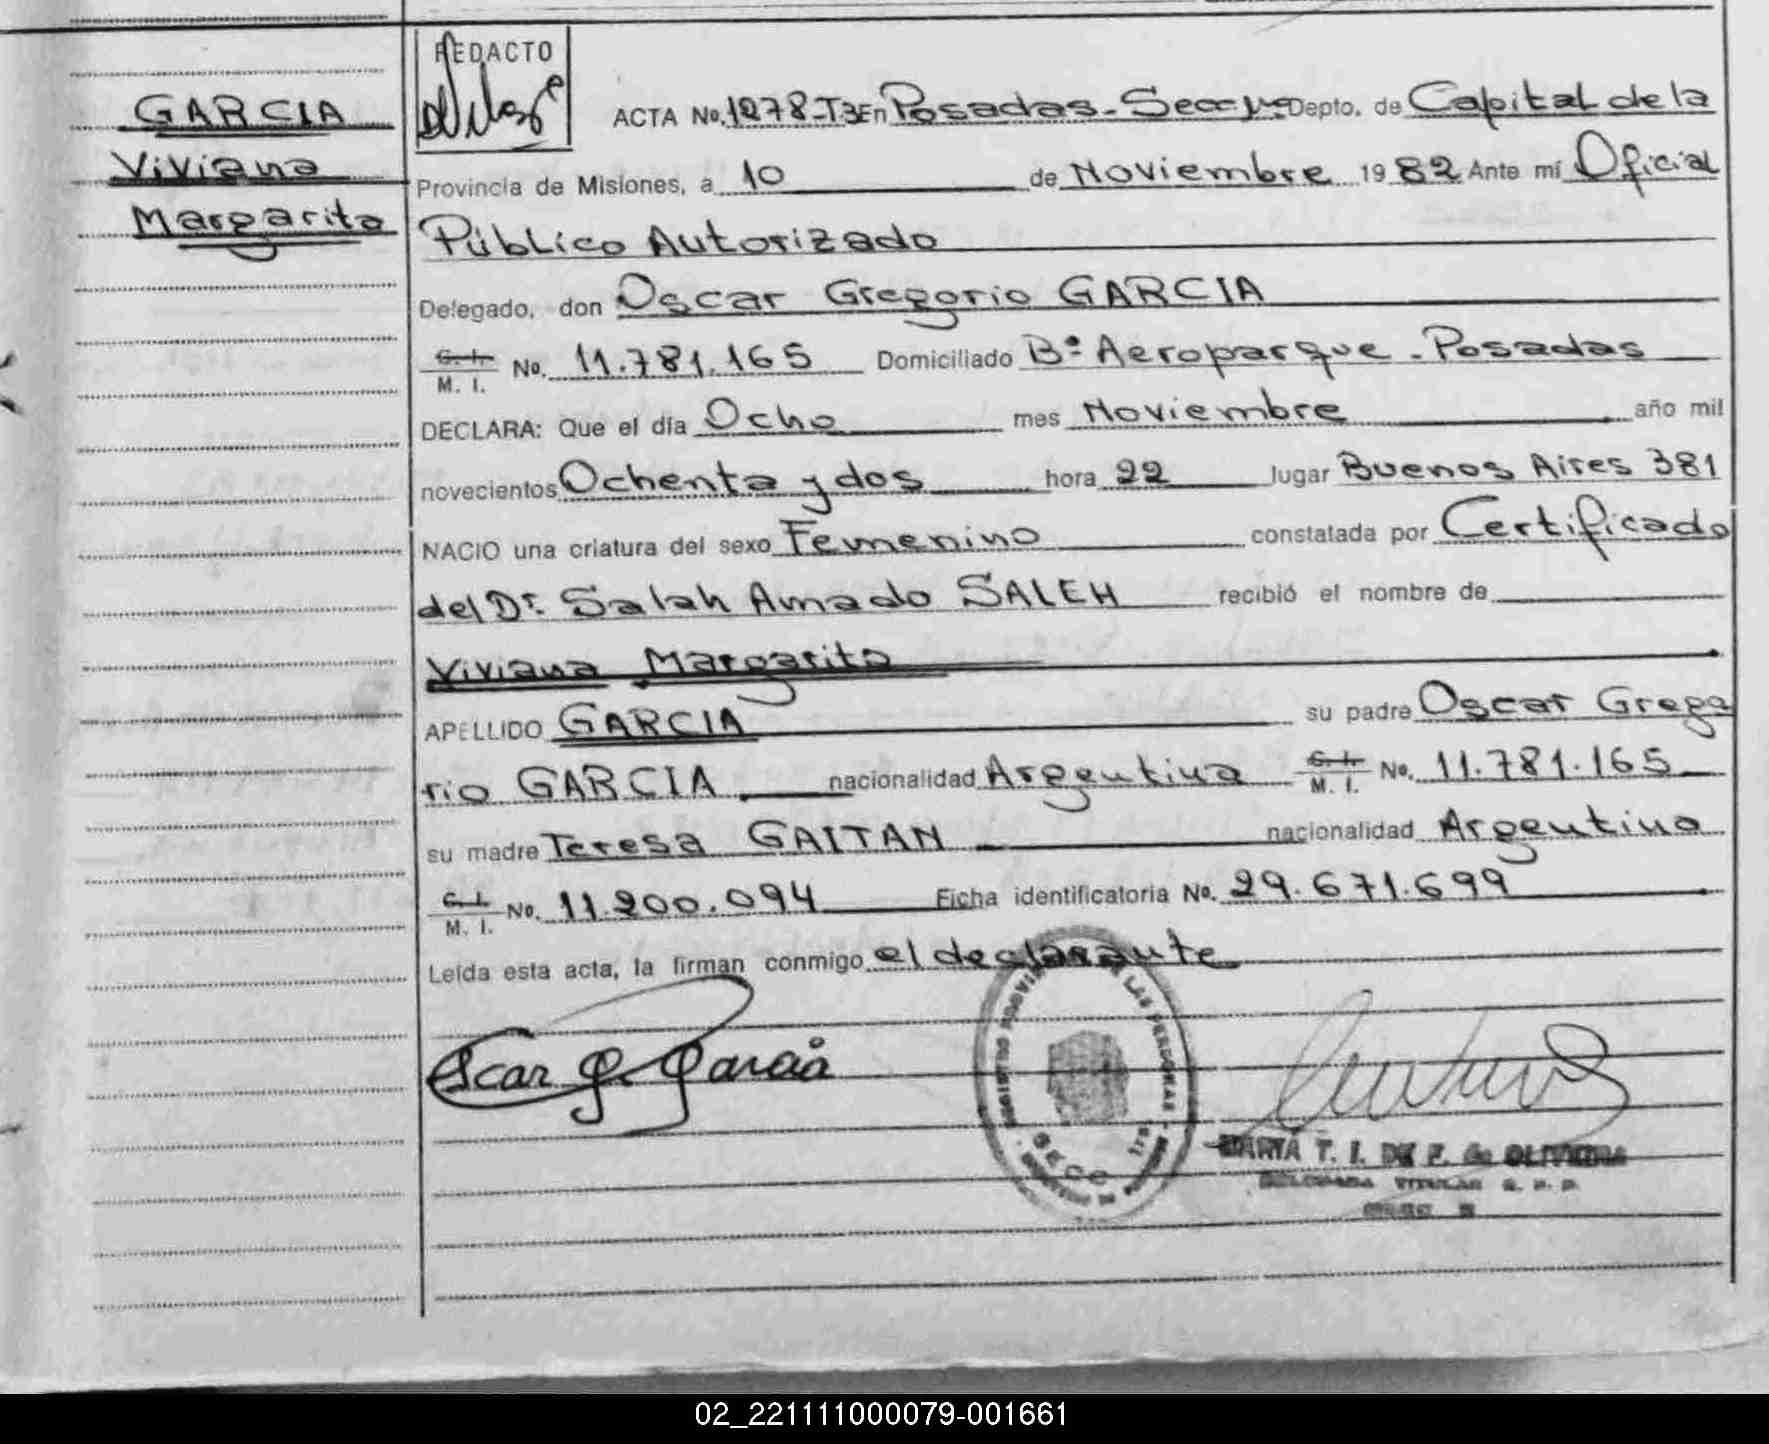 GARCIA
Viviana
Margarita
REDACTO
ACTA No. 1278-T3 En Posadas - Secc Depto. de Capital de la
Provincia de Misiones, a 10 de Noviembre 1982 Ante mí Oficial
Público Autorizado
Delegado, don Oscar Gregorio GARCIA
C. I. M. I. No. 11.781.165 Domiciliado B° Aeroparque - Posadas
DECLARA: Que el día Ocho mes Noviembre año mil
novecientos Ochenta y dos hora 22 lugar Buenos Aires 381
NACIO una criatura del sexo Femenino constatada por Certificado
del Dr. Salah Amado SALEH recibió el nombre de
Viviana Margarita
APELLIDO GARCIA su padre Oscar Grego
rio GARCIA nacionalidad Argentina C. I. M. I. No. 11.781.165
su madre Teresa GAITAN nacionalidad Argentina
C. I. M. I. No. 11.200.094 Ficha identificatoria No. 29.671.699
Leída esta acta, la firman conmigo el declarante
Oscar G. Garcia
LAS PERSONAS
SECC
MARIA T. I. DE F. de OLIVEIRA
DELEGADA TITULAR R. P. P.
02_221111000079-001661